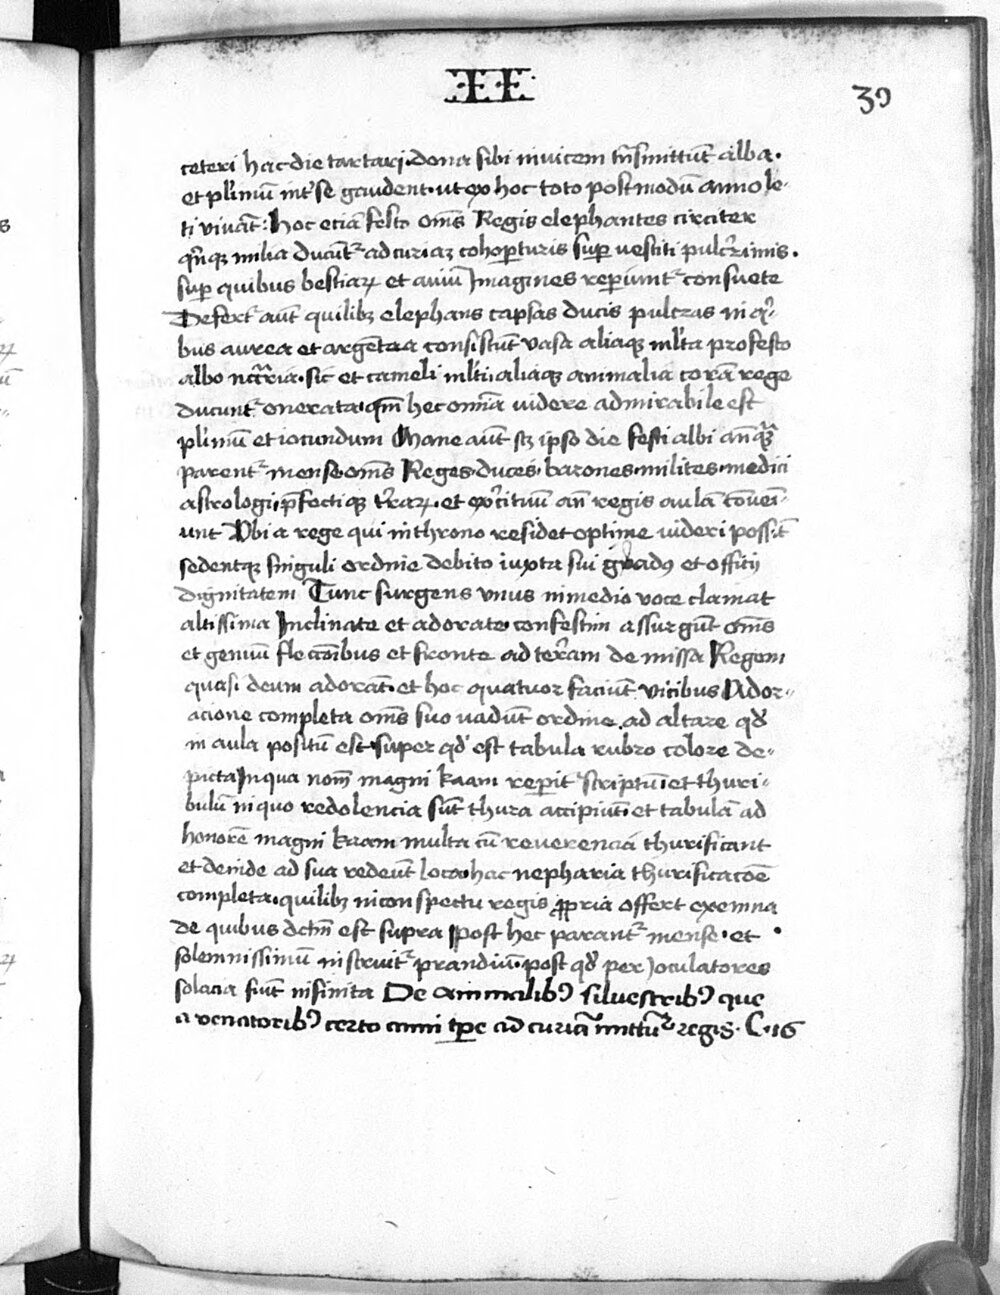 II
39
ceteri hac die tartari · dona sibi invicem trãsmittũt alba ·
et pl'imũ int' se gaudent · ut ex hoc toto postmodũ anno le-
ti vivãt : hoc etiã festo om̃s Regis elephantes circiter
qn̄qꝫ milia ducũt' ad curiaꝫ cohopturis suꝑ vestiti pulcr̃imis ·
suꝑ quibus bestiaꝝ et aviũ Imagines repiunt' consuete
Defert' aũt quilibꝫ elephans capsas ducis pulcras in q'-
bus aurea et argẽtea consistũt vasa aliaqꝫ ml'ta pro festo
albo nc̃c̃ria · sic et cameli ml'ti · aliaqꝫ animalia corã rege
ducunt' onerata · qm̃ hec om̃ia videre admirabile est
pl'imũ et iocundum Mane aũt sꝫ ipso die festi albi anq̃ꝫ
parent' mense · om̃s Reges · duces · barones · milites · medici
astrologi · p̃fectiqꝫ t'raꝝ · et ex'cituũ añ regis aulã cõveñi-
unt Vbi a rege qui in throno residet optime videri possĩt
sedentqꝫ singuli ordine debito iuxta sui gradꝯ et offitii
dignitatem Tunc surgens vnus in medio voce clamat
altissima Inclinate et adorate · confestim assurgũt om̃s
et genuũ flexiõibus et fronte ad ter̃am demissa Regem
quasi deum adorãt · et hoc quatuor faciũt vicibus Ador-
acione completa om̃s suo vadũt ordine ad altare qđ
in aula positũ est · super qđ est tabula rubro colore de-
picta In qua nom̃ magni kaam reperit' scriptũ et thuri-
bulũ in quo redolencia sũt thura accipiũt · et tabulã ad
honorẽ magni kaam multa cũ reverencia thurificant
et deinde ad sua redeũt loca · hac nepharia thurificac̃oẽ
completa · quilibꝫ in conspectu regis ꝓpria offert exemna
de quibus dctm̃ est supra Post hec parant' mense · et ·
solemnissimũ instruit' prandiũ · post qđ per Joculatores
solacia fiũt infinita De animalibꝯ silvestribꝯ que
a venatoribꝯ certo anni tꝑe ad curiã mittũt' regis · C · 16